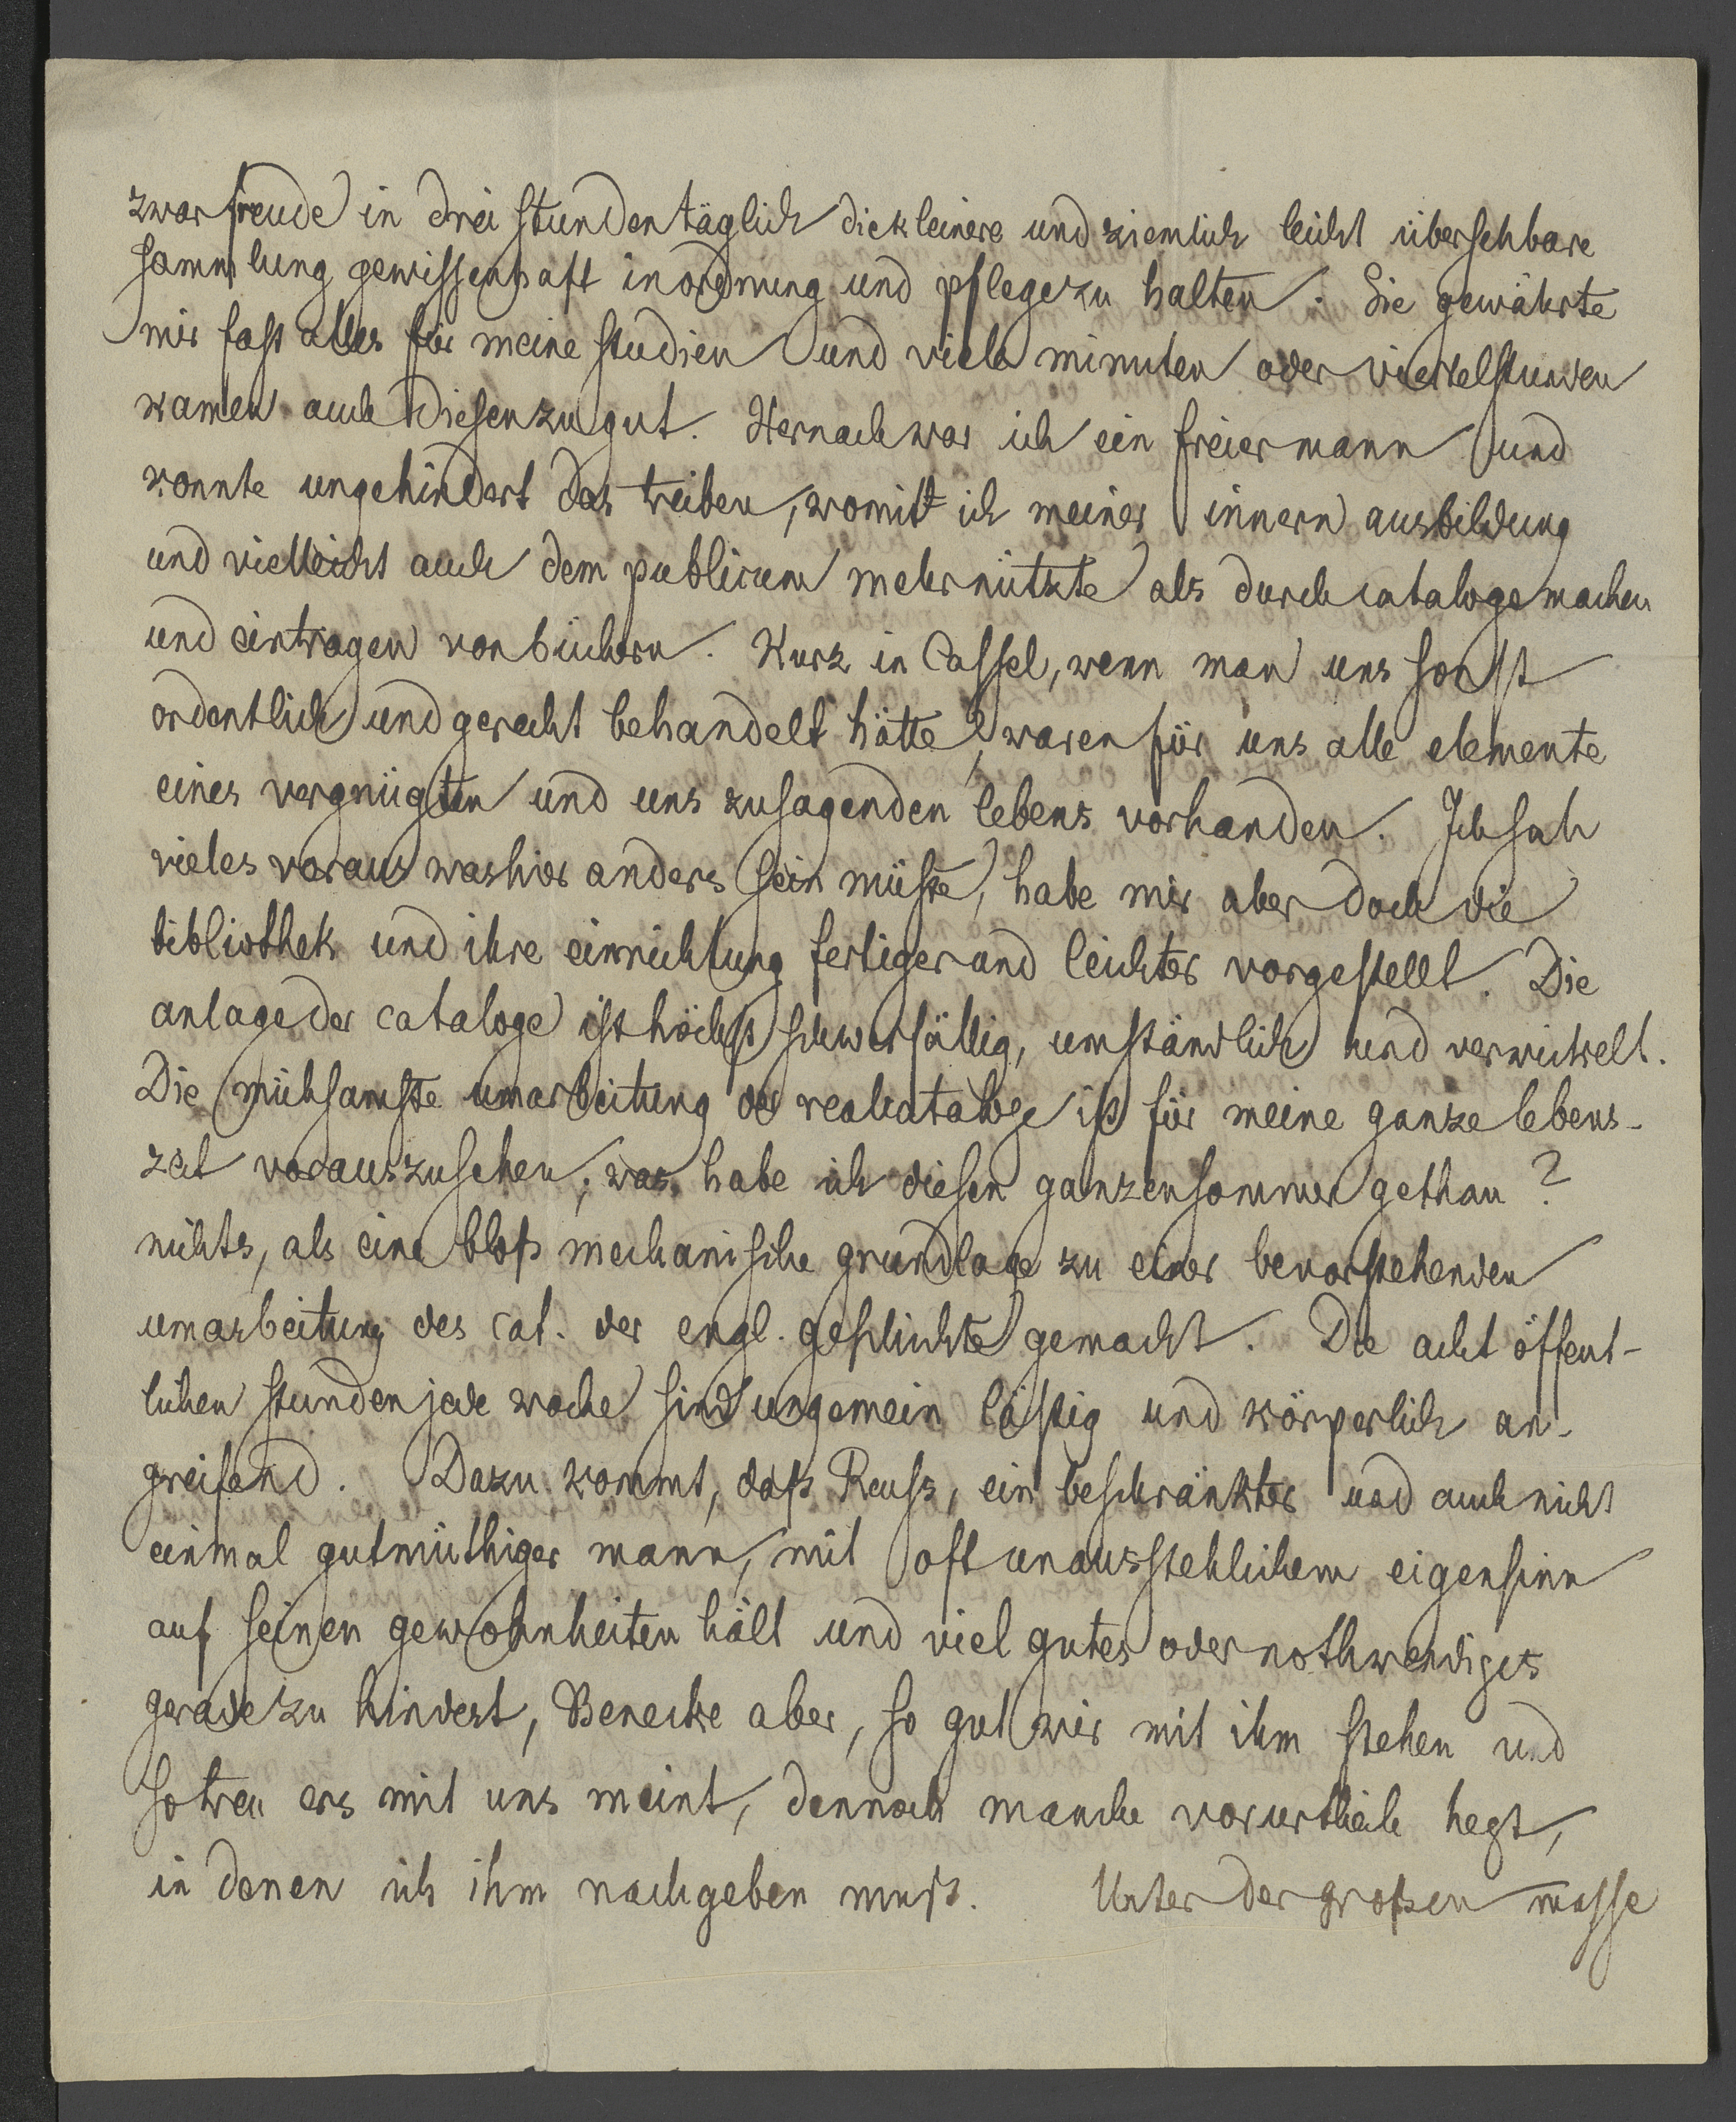 zwar freude in drei stunden täglich die kleinere und ziemlich leicht übersehbare
sammlung gewissenhaft in ordnung und pflege zu halten. Sie gewährte
mir fast alles für meine studien und viele minuten oder viertelstunden
kamen auch diesen zu gut. Hernach war ich ein freier mann und
konnte ungehindert das treiben, womit ich meiner innern ausbildung
und vielleicht auch dem publicum mehr nützte als durch cataloge machen
und eintragen von büchern. Kurz in Cassel, wenn man uns sonst
ordentlich und gerecht behandelt hätte, waren für uns alle elemente
eines vergnügten und uns zusagenden lebens vorhanden. Ich sah
vieles voraus was hier anders sein müste, habe mir aber doch die
bibliothek und ihre einrichtung fertiger und leichter vorgestellt. Die
anlage der cataloge ist höchst schwerfällig, umständlich und verwickelt.
Die mühsamste umarbeitung der realcataloge ist für meine ganze lebens-
zeit vorauszusehen; was habe ich diesen ganzen sommer gethan?
nichts, als eine bloß mechanische grundlage zu einer bevorstehenden
umarbeitung des cat. der engl. geschichte gemacht. Die acht öffent-
lichen stunden jede woche sind ungemein lästig und körperlich an-
greifend. Dazu kommt, daß Reuss, ein beschränkter und auch nicht
einmal gutmüthiger mann, mit oft unausstehlichem eigensinn
auf seinen gewohnheiten hält und viel gutes oder nothwendiges
geradezu hindert, Benecke aber, so gut wir mit ihm stehen und
so treu ers mit uns meint, dennoch manche vorurtheile hegt,
in denen ich ihm nachgeben muß. Unter der großen masse